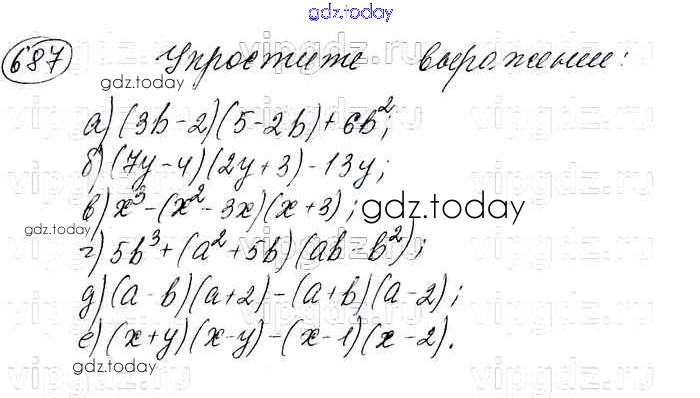 gdz.today
687 Упростите выражение:
gdz.today
а) (3b-2)(5-2b)+6b²;
б) (7y-4)(2y+3)-13y;
в) x³-(x²-3x)(x+3); gdz.today
г) 5b³+(a²+5b)(ab-b²);
д) (a-b)(a+2)-(a+b)(a-2);
е) (x+y)(x-y)-(x-1)(x-2).